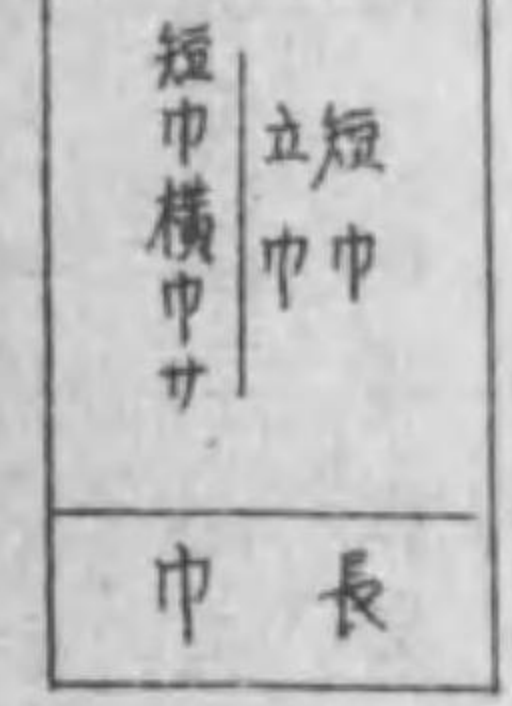 短巾
立巾
短巾横巾サ
長巾